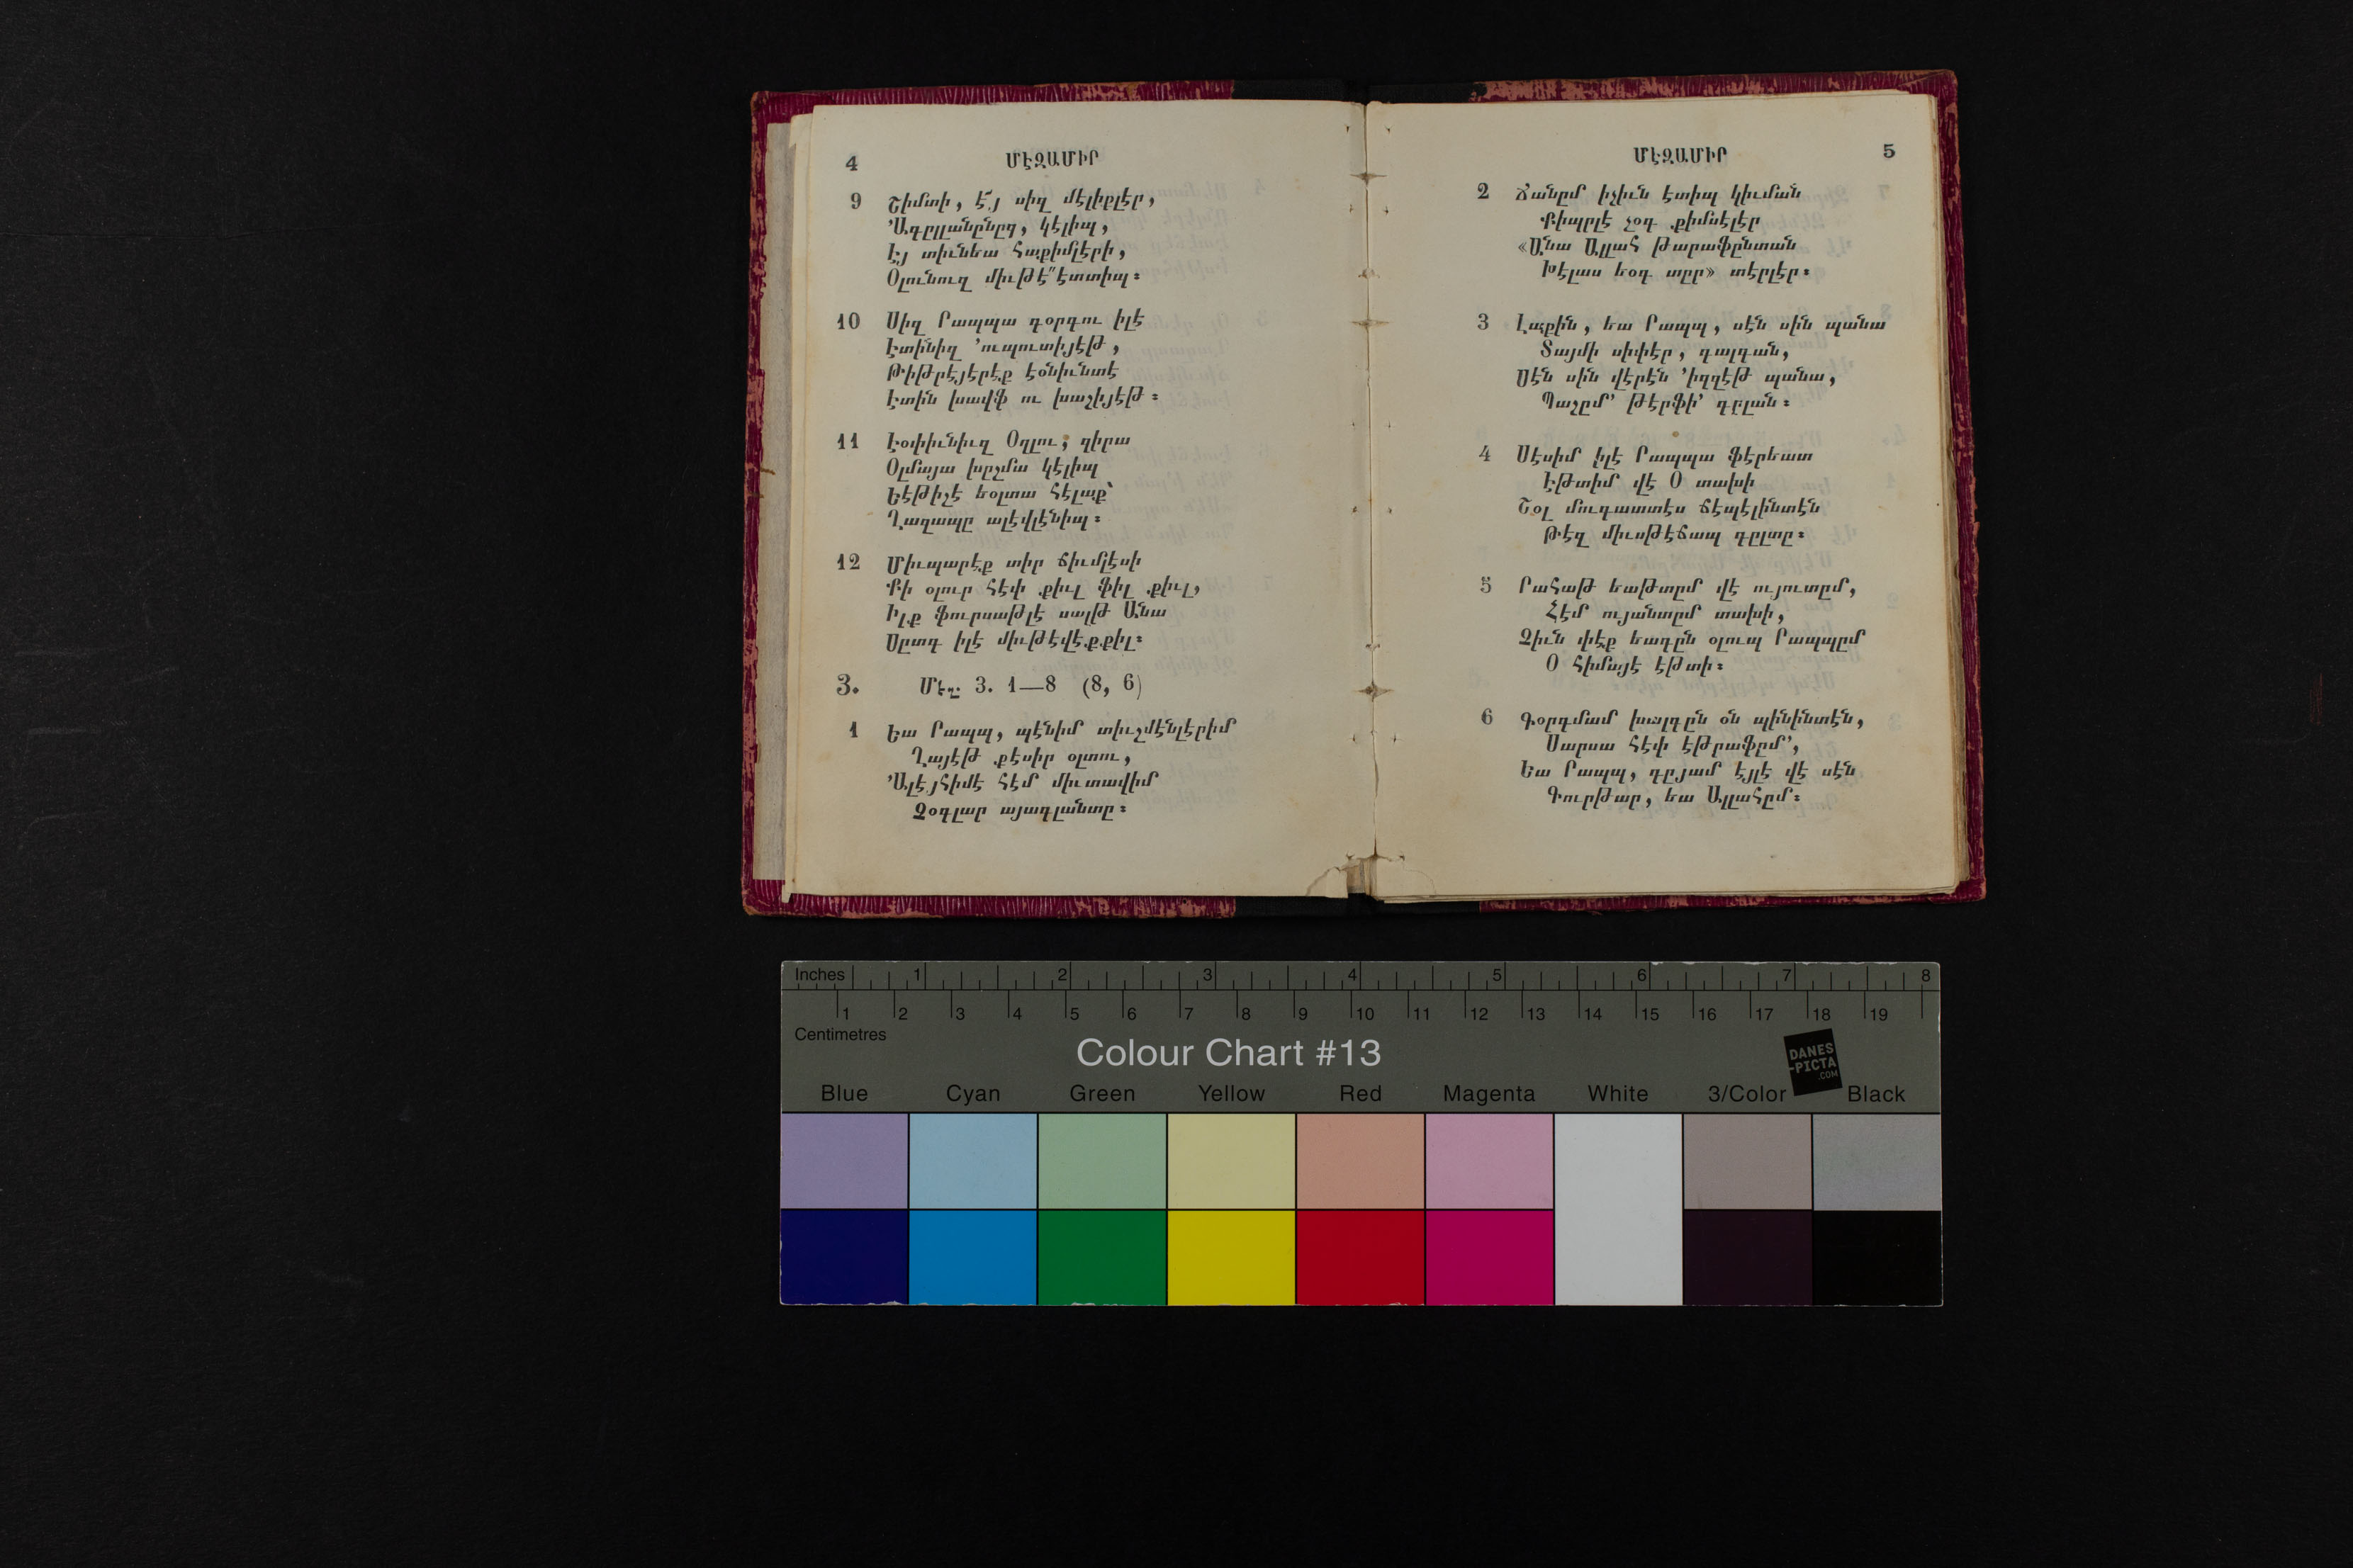 4 ՄէԶԱՄԻՐ
9 Շիմտի, է՜յ սիզ մէլիքլէր,
՚Ագըլլանընըզ, կէլիպ,
Էյ տիւնեա հաքիմլէրի,
Օլունուզ միւթէ՛՛էտտիպ։
10 Սիզ Րապպա գօրգու իլէ
Էտինիզ ՚ուպուտիյէթ,
Թիթրէյէրէք էօնիւնտէ
Էտին խավֆ ու խաշիյէթ։
11 Էօփիւնիւզ Օղլու, զիրա
Օլմայա խըշմա կէլիպ
Եէթիշէ եօլտա հէլաք՝
Ղազապը ալէվլէնիպ։
12 Միւպարէք տիր ճիւմլէսի
Քի օլուր հէփ քիւլ ֆիլ քիւլ,
Իլք ֆուրսաթլէ սալթ Անա
Սըտգ իլէ միւթէվէքքիլ։
3. Մեզ. 3. 1—8 (8, 6)
1 Եա Րապպ, պէնիմ տիւշմէնլէրիմ
Ղայէթ քէսիր օլտու,
՚Ալէյհիմէ հէմ միւտավիմ
Չօգլար այագլանտը։
ՄէԶԱՄԻՐ 5
2 Ճանըմ իչիւն էտիպ կիւման
Քիպրլէ չօգ քիմսէլէր
«Անա Ալլահ թարաֆընտան
Խէլաս եօգ տըր» տէրլէր։
3 Լաքին, եա Րապպ, սէն սին պանա
Տայմի սիփէր, գալգան,
Սէն սին վէրէն ՚իզզէթ պանա,
Պաշըմ՚ թէրֆի՚ գըլան։
4 Սէսիմ իլէ Րապպա ֆէրեատ
Էթտիմ վէ Օ տախի
Շօլ մուգատտէս ճէպէլինտէն
Թէզ միւսթէճապ գըլտը։
5 Րահաթ եաթտըմ վէ ույուտըմ,
Հէմ ույանտըմ տախի,
Չիւն փէք եագըն օլուպ Րապպըմ
Օ հիմայէ էթտի։
6 Գօրգմամ խալգըն օն պինինտէն,
Սարսա հէփ էթրաֆըմ՚,
Եա Րապպ, գըյամ էյլէ վէ սէն
Գուրթար, եա Ալլահըմ։
Inches 1 2 3 4 5 6 7 8
1 2 3 4 5 6 7 8 9 10 11 12 13 14 15 16 17 18 19
Centimetres
Colour Chart #13
DANES
-PICTA
.COM
Blue Cyan Green Yellow Red Magenta White 3/Color Black